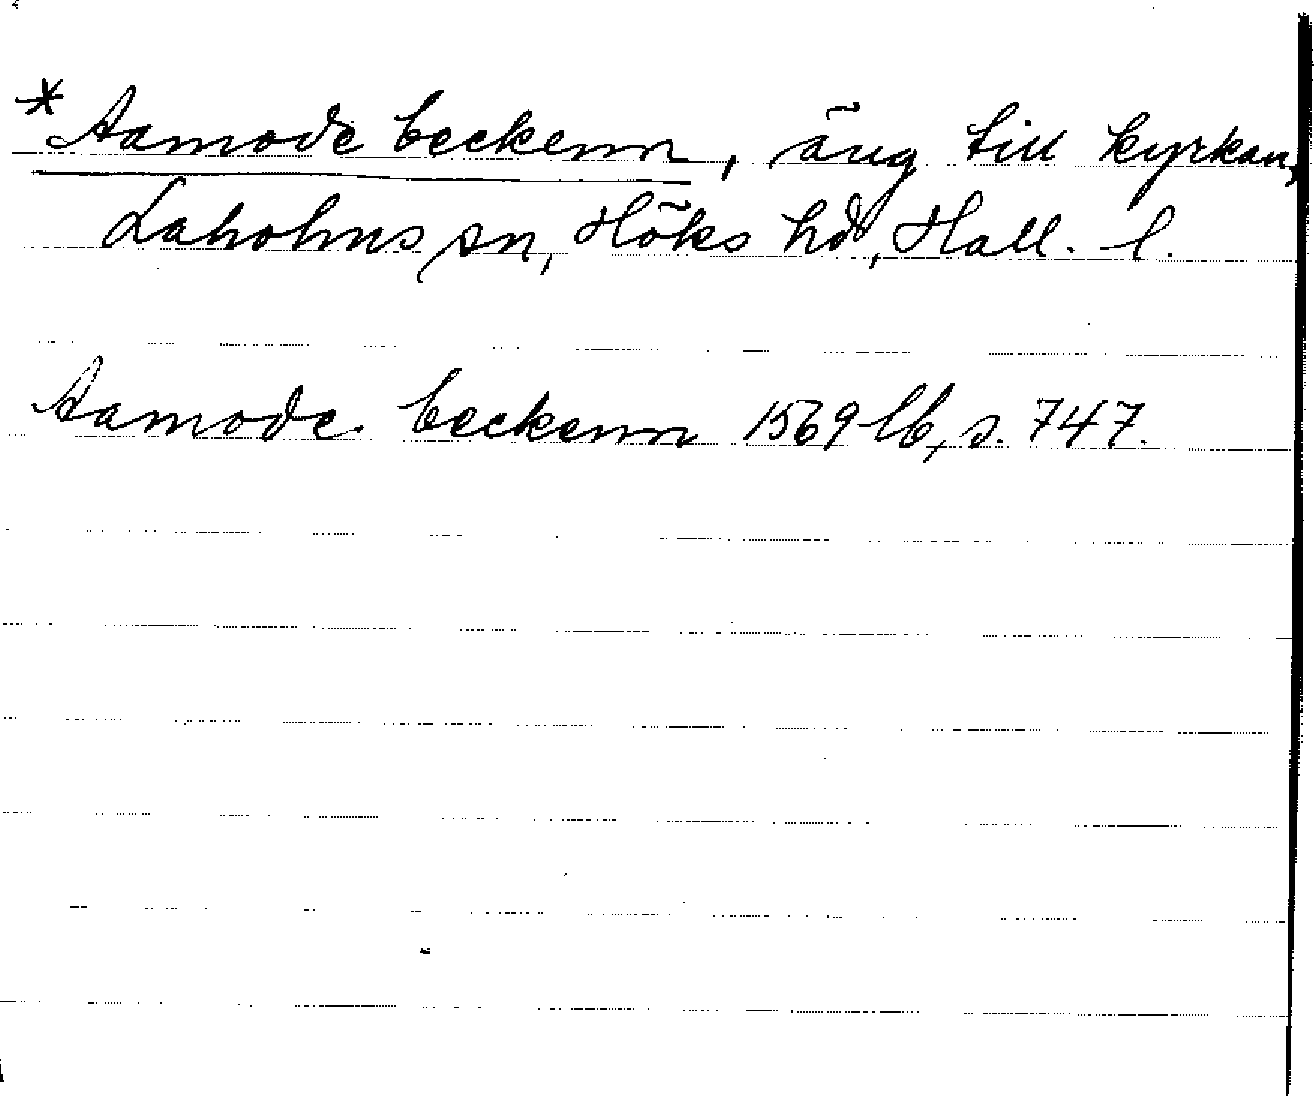 *Aamode beckenn, äng till kyrkan,
Laholms sn, Höks hd, Hall. l.
Aamode beckenn 1569 lb, s. 747.